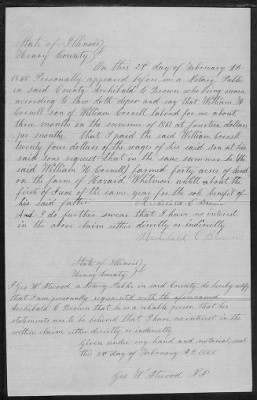 State of Illinois
Henry County
On this 28 day of February AD
Personally appeared before me a Notary Public
in said County Archibald C Brown who being sworn
according to law doth depose and say that William H
Cornell son of William Cornell labored for me about
three months in the summer of 1861 at fourteen dollars
per month. That I paid the said William Cornell
twenty four dollars of the wages of his said son at his
said sons request that in the same summer he the
said William H Cornell farmed forty acres of land
on the farm of Whitmore until about the
first of June of the same year for the sole benefit of
his said father Archibald C Brown
And I do further swear that I have no interest
in the above claim either directly or indirectly
Archibald C Brown
State of Illinois
Henry County
I Geo W Atwood a Notary Public in said County do hereby certify
that I am personally acquainted with the aforenamed
Archibald C Brown that he is a reliable person that his
statements are to be believed that I have no interest in the
within claim either directly or indirectly
Given under my hand and notarial seal
this 28 day of February A.D.
Geo W Atwood N.P.